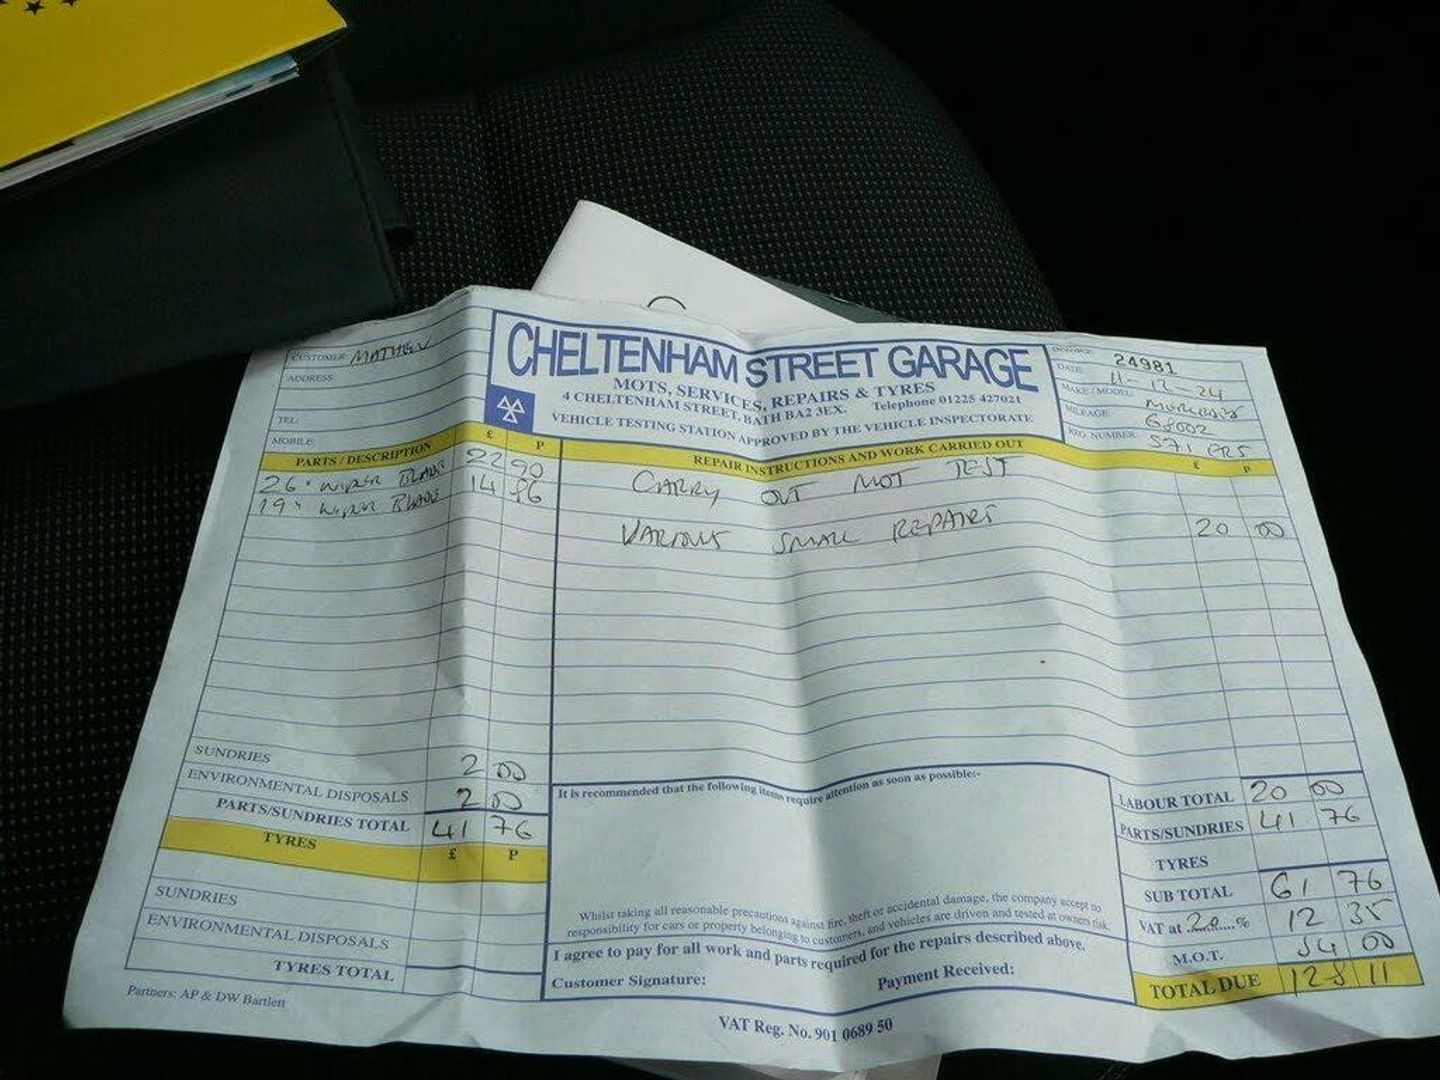 CUSTOMER: MATHEW
ADDRESS
TEL:
MOBILE:
CHELTENHAM STREET GARAGE
MOTS, SERVICES, REPAIRS & TYRES
4 CHELTENHAM STREET, BATH BA2 3EX. Telephone 01225 427021
VEHICLE TESTING STATION APPROVED BY THE VEHICLE INSPECTORATE
INVOICE 24981
DATE 11-12-24
MAKE / MODEL
MILEAGE 68002
REG. NUMBER S71 ERS
PARTS / DESCRIPTION £ P
26" WIPER BLADE 22 90
19" WIPER BLADE 14 86
SUNDRIES 2 00
ENVIRONMENTAL DISPOSALS 2 00
PARTS/SUNDRIES TOTAL 41 76
TYRES £ P
SUNDRIES
ENVIRONMENTAL DISPOSALS
TYRES TOTAL
Partners: AP & DW Bartlett
REPAIR INSTRUCTIONS AND WORK CARRIED OUT £ P
CARRY OUT MOT TEST
VARIOUS SMALL REPAIRS 20 00
It is recommended that the following items require attention as soon as possible:-
Whilst taking all reasonable precautions against fire, theft or accidental damage, the company accept no
responsibility for cars or property belonging to customers, and vehicles are driven and tested at owners risk.
I agree to pay for all work and parts required for the repairs described above.
Customer Signature: Payment Received:
LABOUR TOTAL 20 00
PARTS/SUNDRIES 41 76
TYRES
SUB TOTAL 61 76
VAT at 20 % 12 35
M.O.T. 54 00
TOTAL DUE 128 11
VAT Reg. No. 901 0689 50